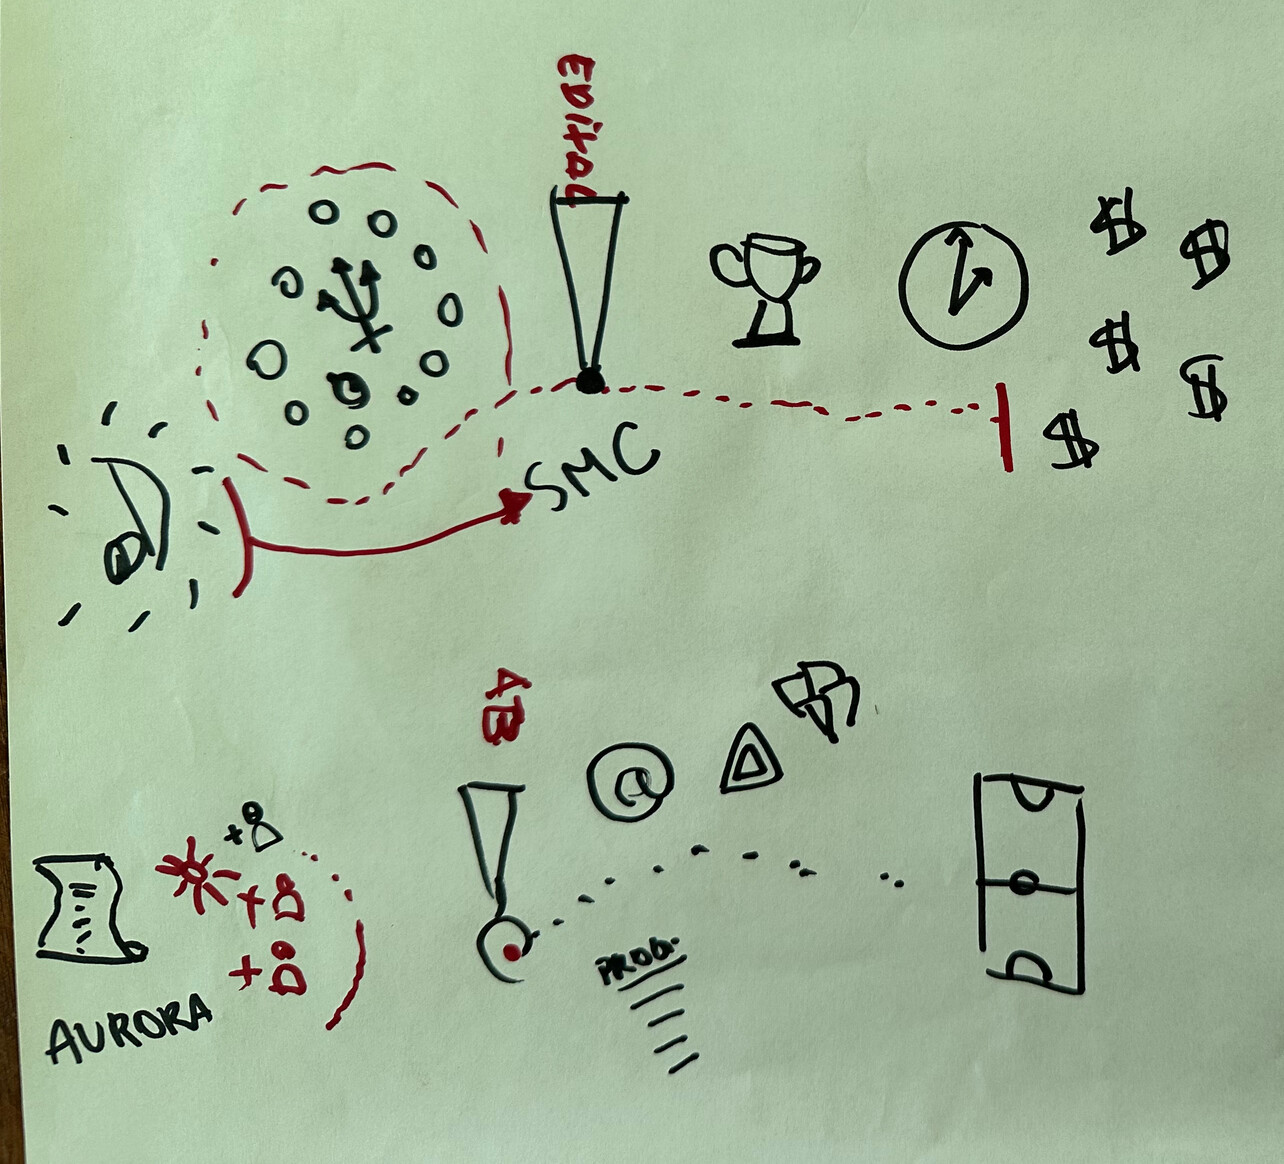 EDITAL
$
$
$
$
$
SMC
AB
@
PROG.
AURORA